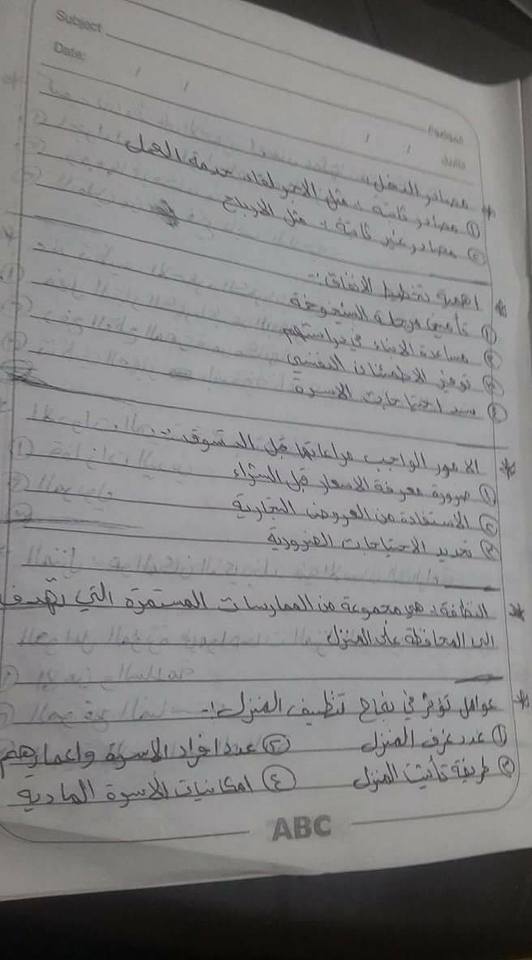 Subject
Date:
الموضوع
التاريخ
* مصادر الدخل :
① مصادر ثابتة : مثل الاجر لقاء خدمة العمل
② مصادر غير ثابتة : مثل الارباح
* اهمية تخطيط الانفاق :-
① تأمين مرحلة الشيخوخة
② مساعدة الابناء في دراستهم
③ توفير الاطمئنان النفسي
④ سد احتياجات الاسرة
* الامور الواجب مراعاتها قبل التسوق :-
① ضرورة معرفة الاسعار قبل الشراء
② الاستفادة من العروض التجارية
③ تحديد الاحتياجات الضرورية
* النظافة : هي مجموعة من الممارسات المستمرة التي تهدف
الى المحافظة على المنزل
* عوامل تؤثر في نجاح تنظيف المنزل :-
① عدد غرف المنزل ② عدد افراد الاسرة واعمارهم
③ طريقة تأثيث المنزل ④ امكانيات الاسرة المادية
ABC